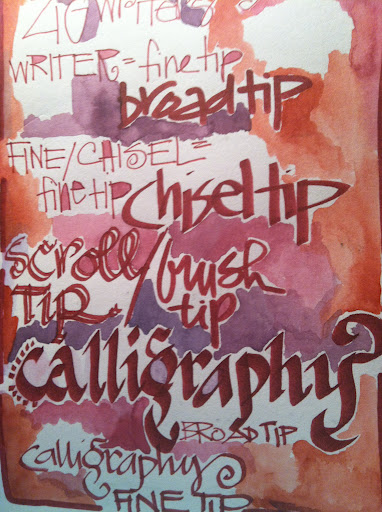 ZIG writers
WRITER = fine tip
broad tip
FINE/CHISEL =
fine tip chisel tip
scroll/brush
TIP. tip
calligraphy
BROAD TIP
calligraphy
FINE TIP